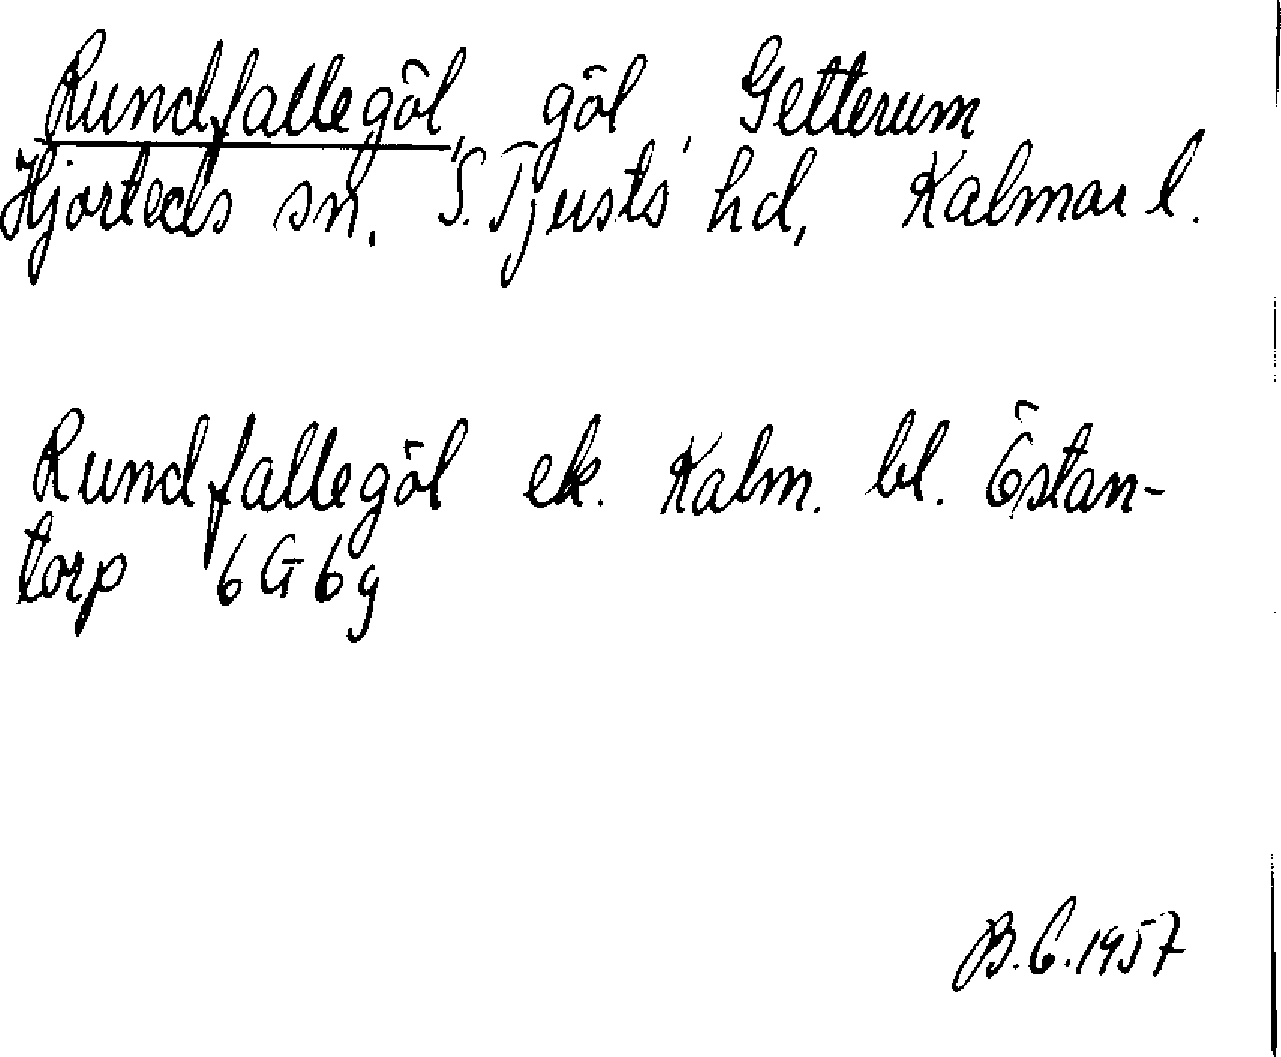 Rundfallegöl, göl, Getterum
Hjorteds sn. S. Tjusts hd, Kalmar l.
Rundfallegöl ek. Kalm. bl. Östan-
torp 6G6g
B.C.1957